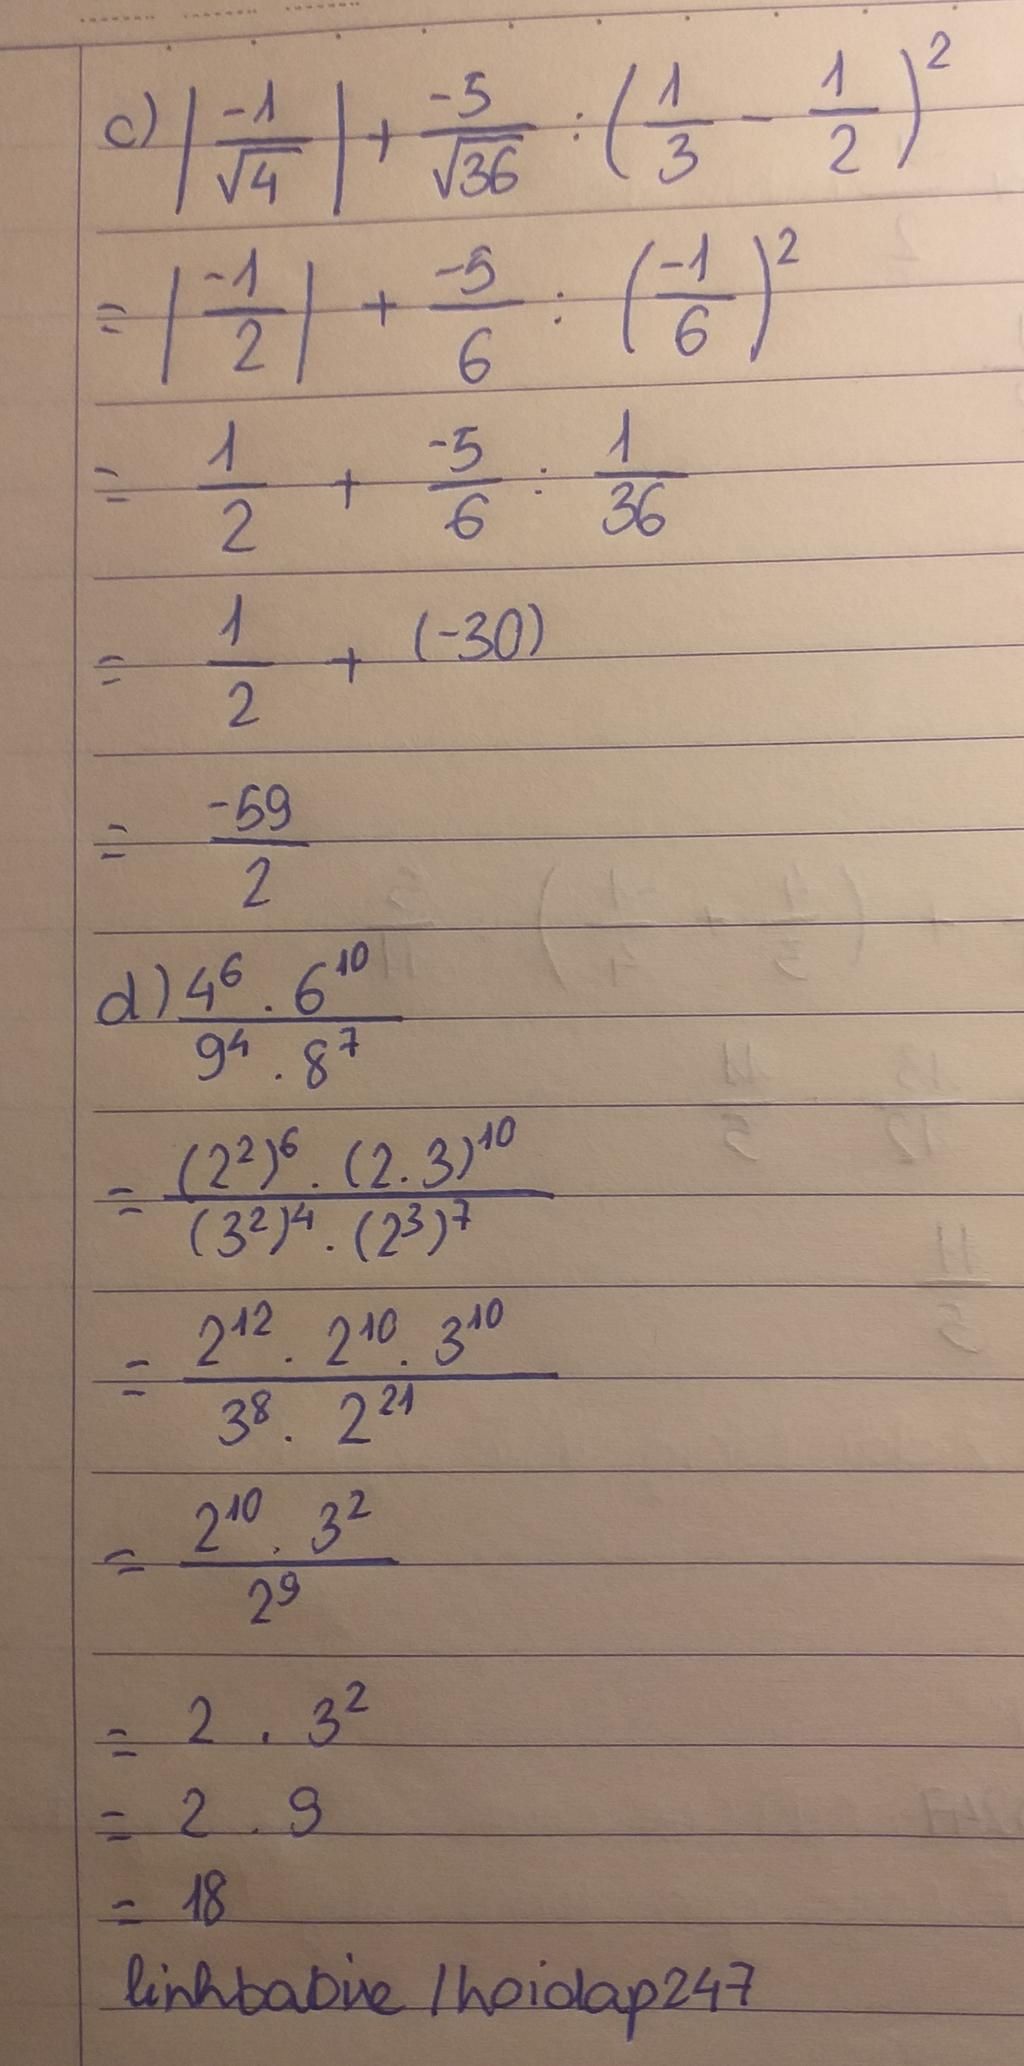 c) |-1/√4| + -5/√36 : (1/3 - 1/2)²
= |-1/2| + -5/6 : (-1/6)²
= 1/2 + -5/6 : 1/36
= 1/2 + (-30)
= -59/2
d) 4⁶ . 6¹⁰ / 9⁴ . 8⁷
= (2²)⁶ . (2.3)¹⁰ / (3²)⁴ . (2³)⁷
= 2¹² . 2¹⁰ . 3¹⁰ / 3⁸ . 2²¹
= 2¹⁰ . 3² / 2⁹
= 2 . 3²
= 2 . 9
= 18
/hoidap247